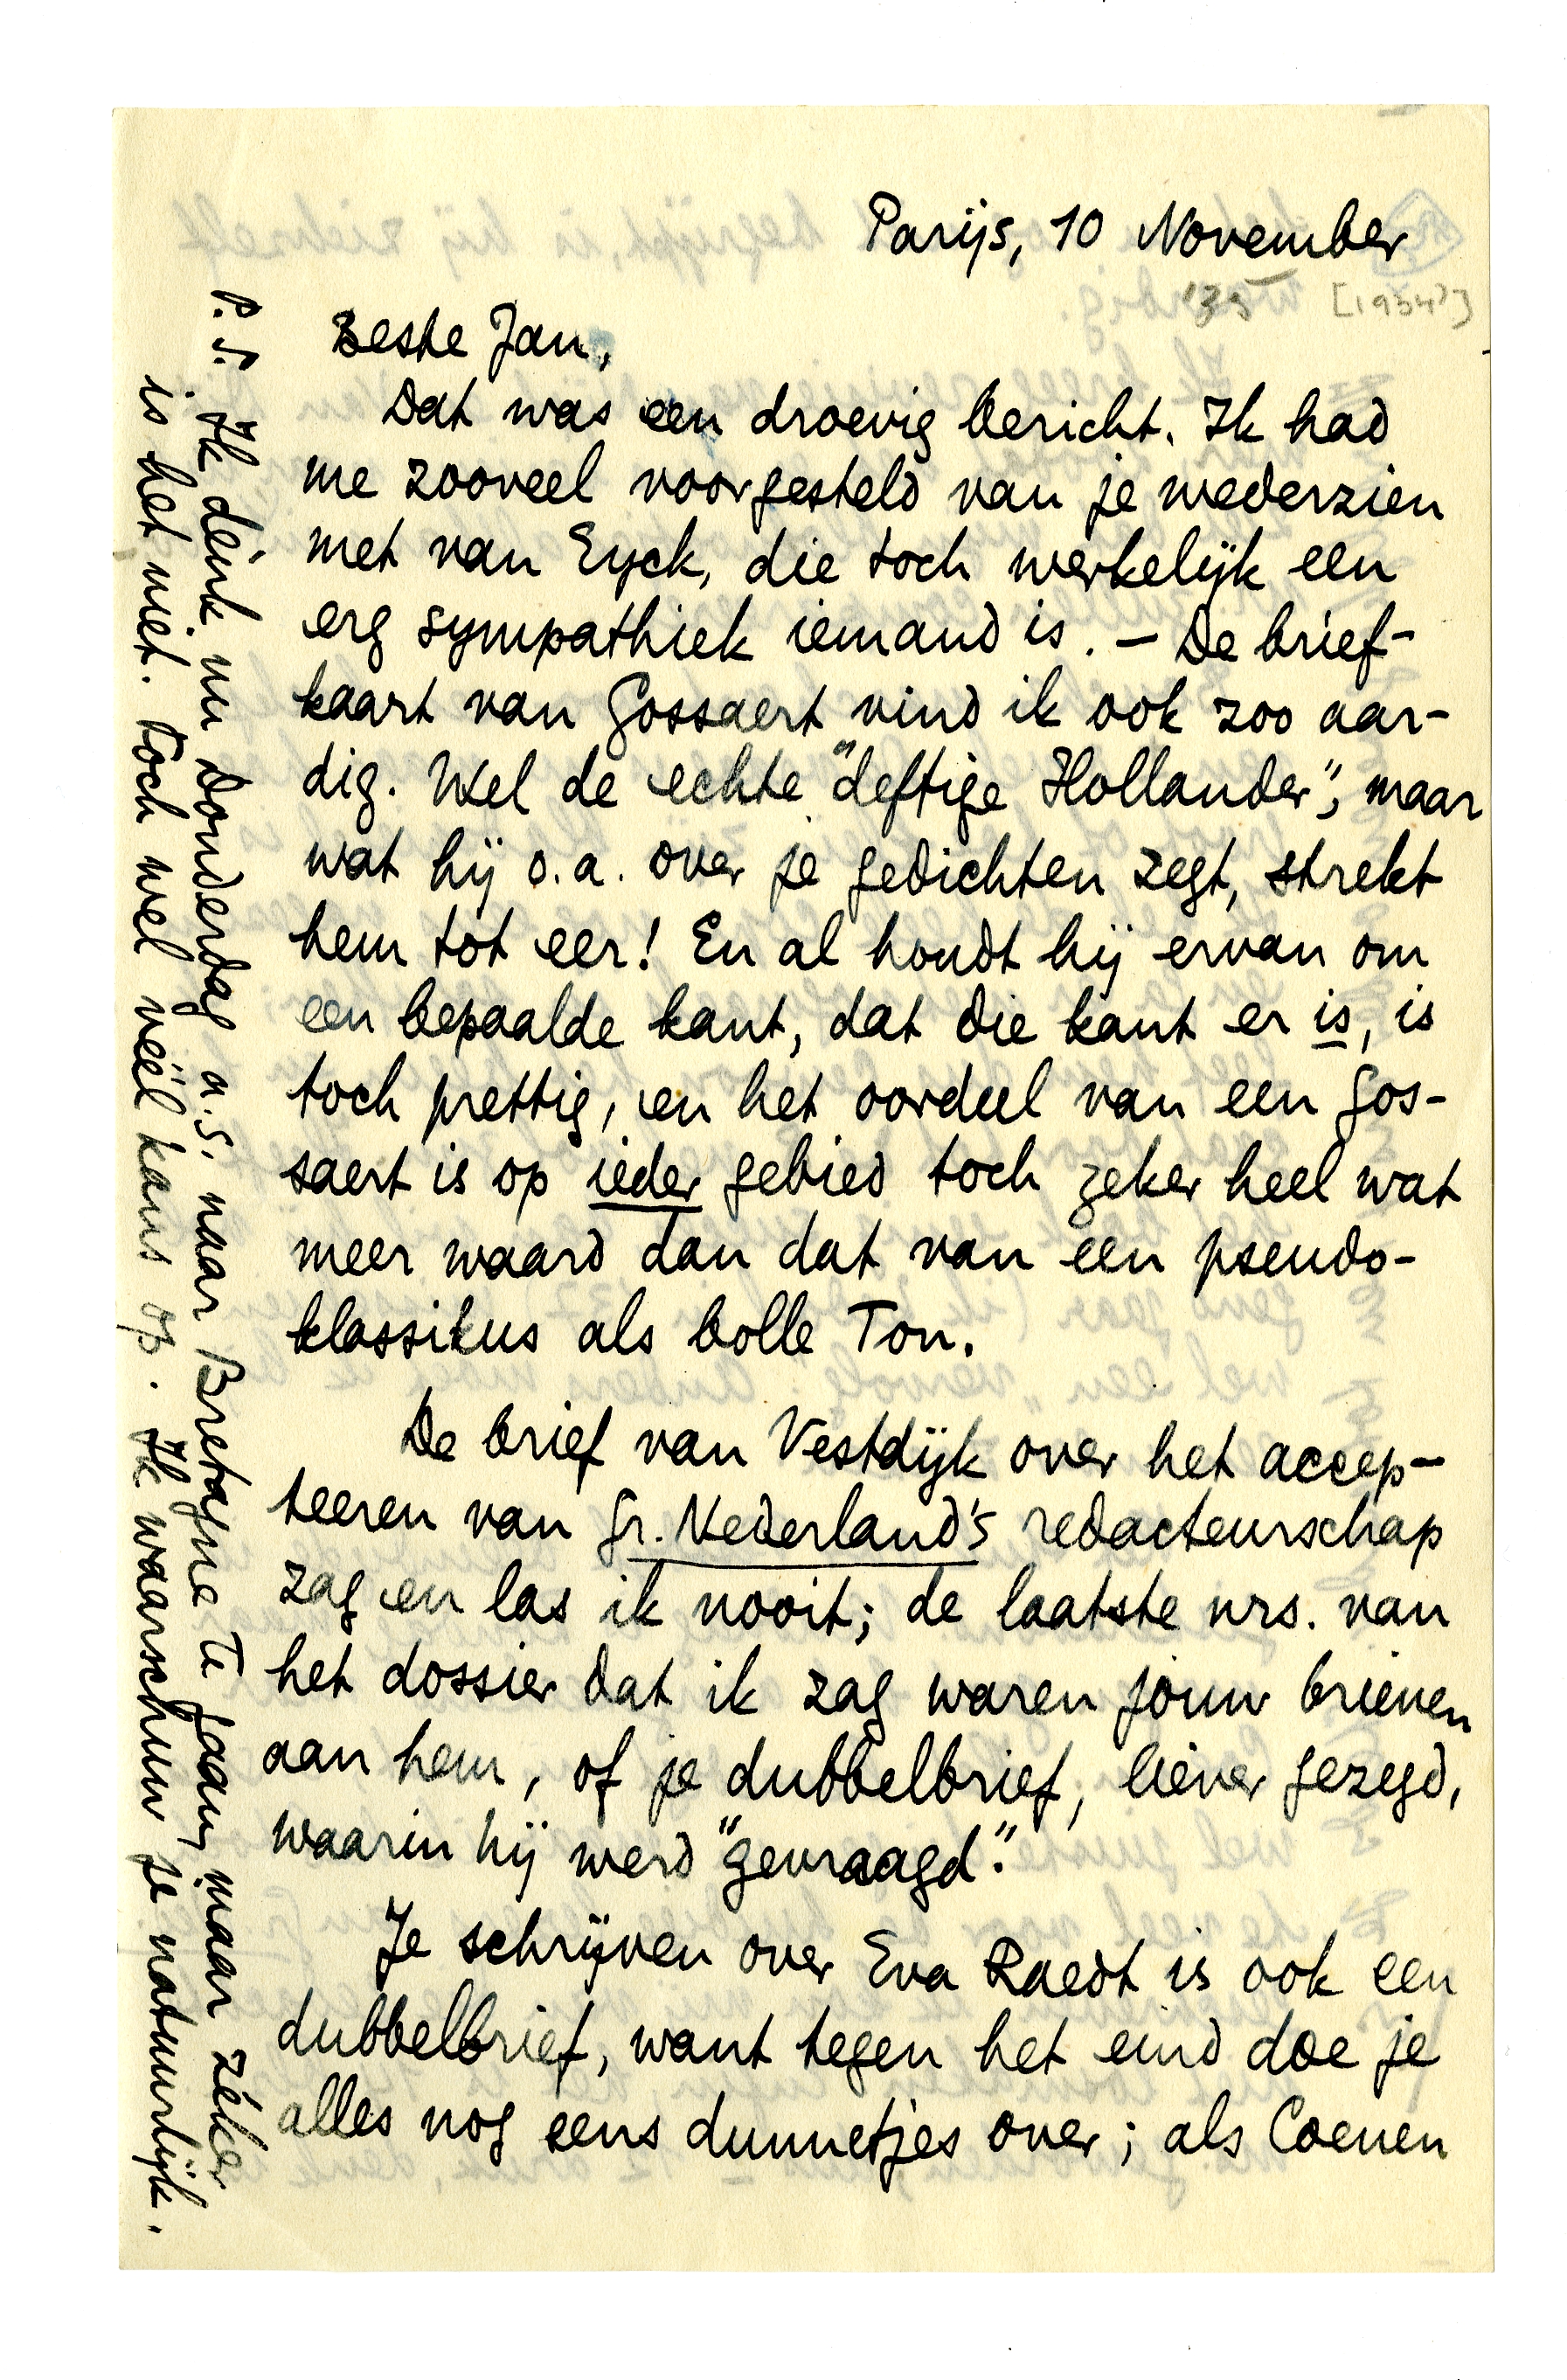 Parijs, 10 November
'35 [1934?]
Beste Jan,
Dat was een droevig bericht. Ik had
me zooveel voorgesteld van je wederzien
met van Eyck, die toch werkelijk een
erg sympathiek iemand is. — De brief-
kaart van Gossaert vind ik ook zoo aar-
dig. Wel de echte "deftige Hollander", maar
wat hij o.a. over je gedichten zegt, strekt
hem tot eer! En al houdt hij ervan om
een bepaalde kant, dat die kant er is, is
toch prettig, en het oordeel van een Gos-
saert is op ieder gebied toch zeker heel wat
meer waard dan dat van een pseudo-
klassikus als bolle Ton.
De brief van Vestdijk over het accep-
teeren van Gr. Nederland's redacteurschap
zag en las ik nooit; de laatste nrs. van
het dossier dat ik zag waren jouw brieven
aan hem, of je dubbelbrief, liever gezegd,
waarin hij werd "gevraagd".
Je schrijven over Eva Raedt is ook een
dubbelbrief, want tegen het eind doe je
alles nog eens dunnetjes over; als Coenen
P.S. Ik dénk nu Donderdag a.s. naar Bretagne te gaan, maar zéker
is het niet. Toch wel véél kans op. Ik waarschuw je natuurlijk.